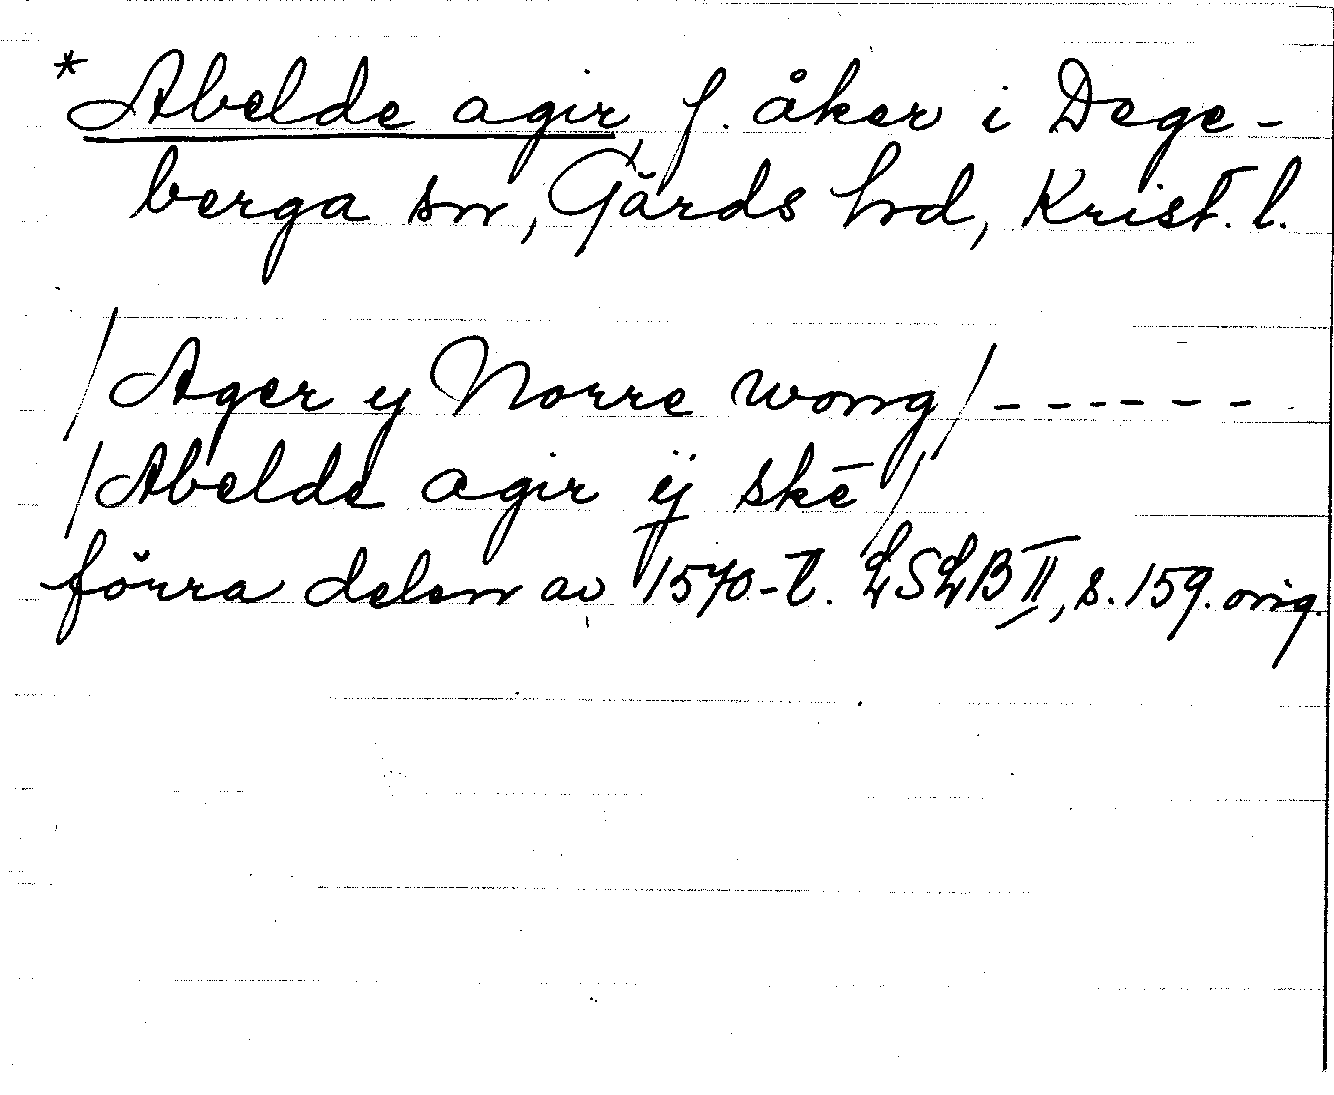 * Abelde agir, f. åker i Dege-
berga sn, Gärds hrd, Krist. l.
/Ager y Norre wong/ ------
/Abelde agir ÿ skē/
förra delen av 1570-t. LSLB II, s. 159. orig.